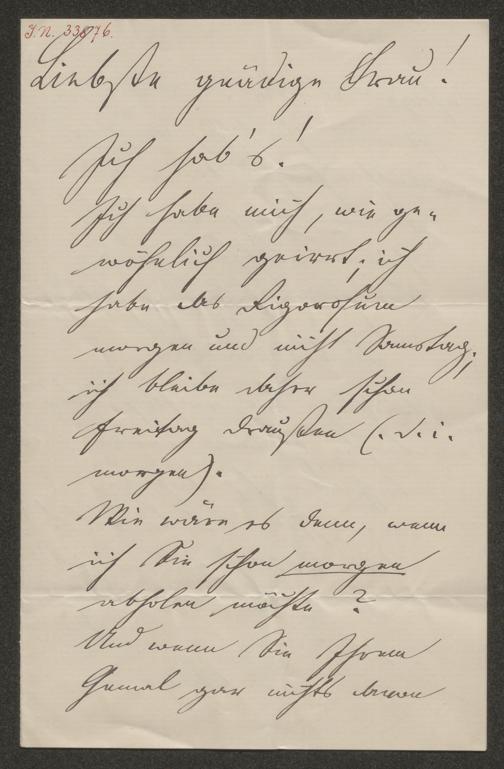 J.N. 33876.
Liebste gnädige Frau!
Ich hab's!
Ich habe mich, wie ge-
wöhnlich geirrt; ich
habe das Rigorosum
morgen und nicht Samstag;
ich bleibe daher schon
Freitag draußen (. d. i.
morgen).
Wie wäre es denn, wenn
ich Sie schon morgen
abholen möchte?
Und wenn Sie Ihrem
Gemal gar nichts davon